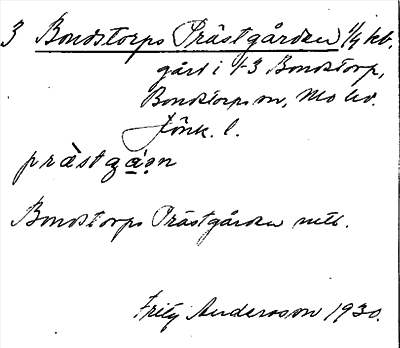 3 Bondstorps Prästgården 1/4 hb.
gård i +3 Bondstorp,
Bondstorps sn, Mo hd.
Jönk. l.
prὰstgá̱ǫn
Bondstorps Prästgården mtl.
Fritz Andersson 1930.